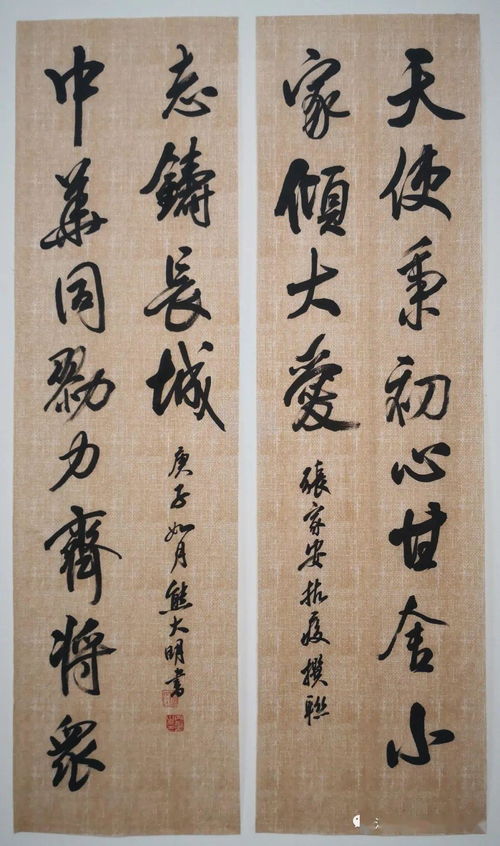 天使秉初心甘舍小
家傾大愛
張家安抗疫撰聯
中華同勠力齊將衆
志鑄長城
庚子如月熊大明書